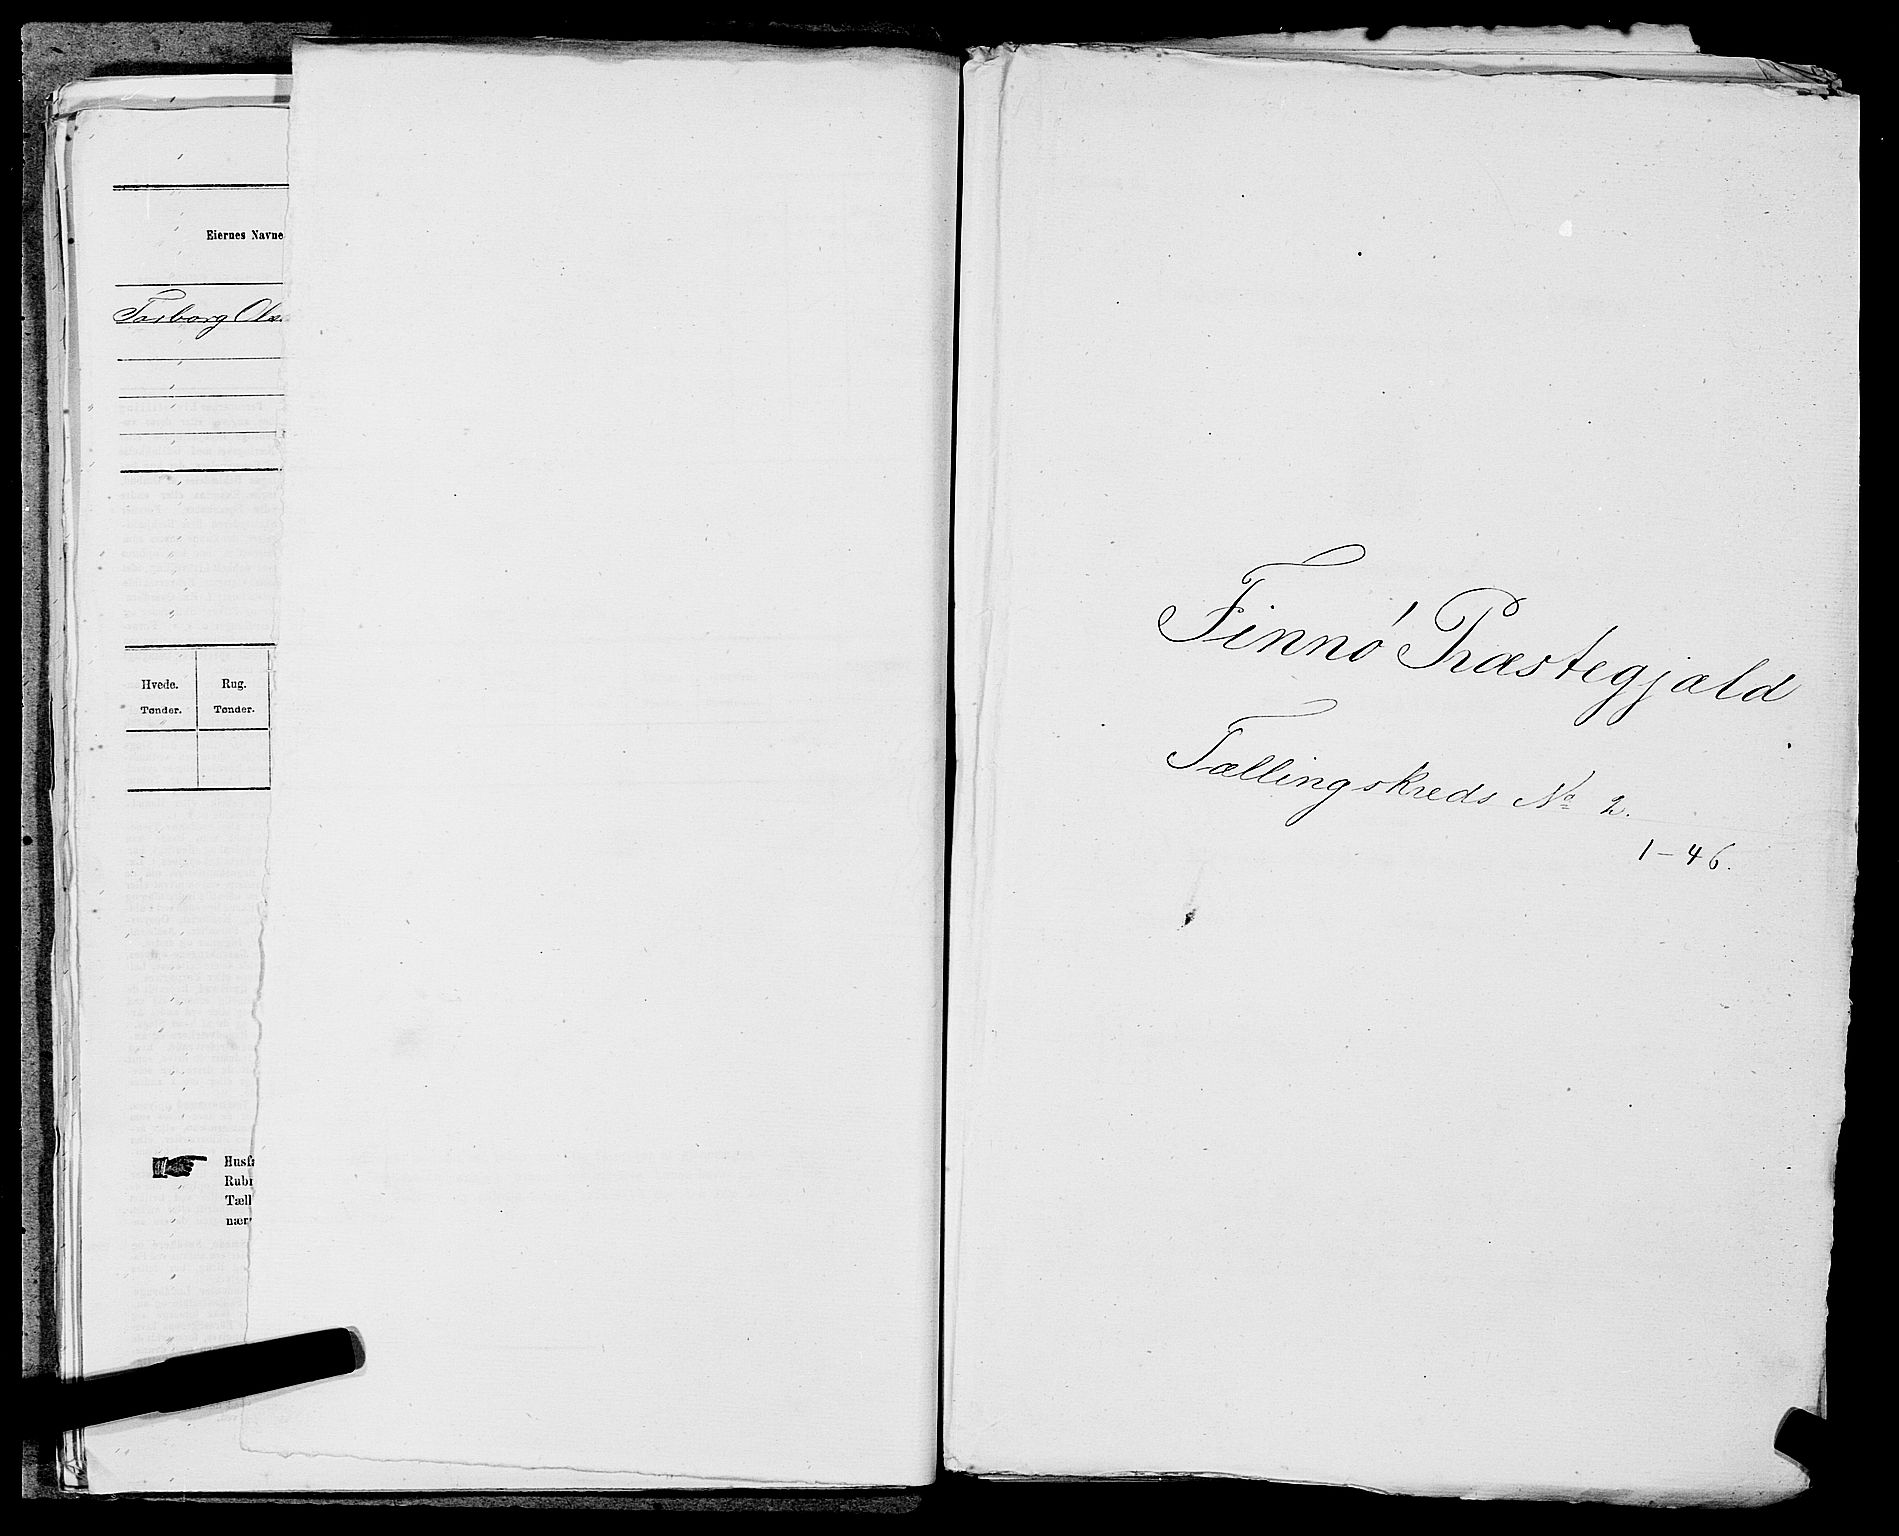 Eiernes Navne
Torborg Ols
Hvede.
Tønder.
Rug.
Tønder.
Husf
Rub
Tæll
nær
Finnø Præstegjæld
Tællingskreds No 2.
1-46.